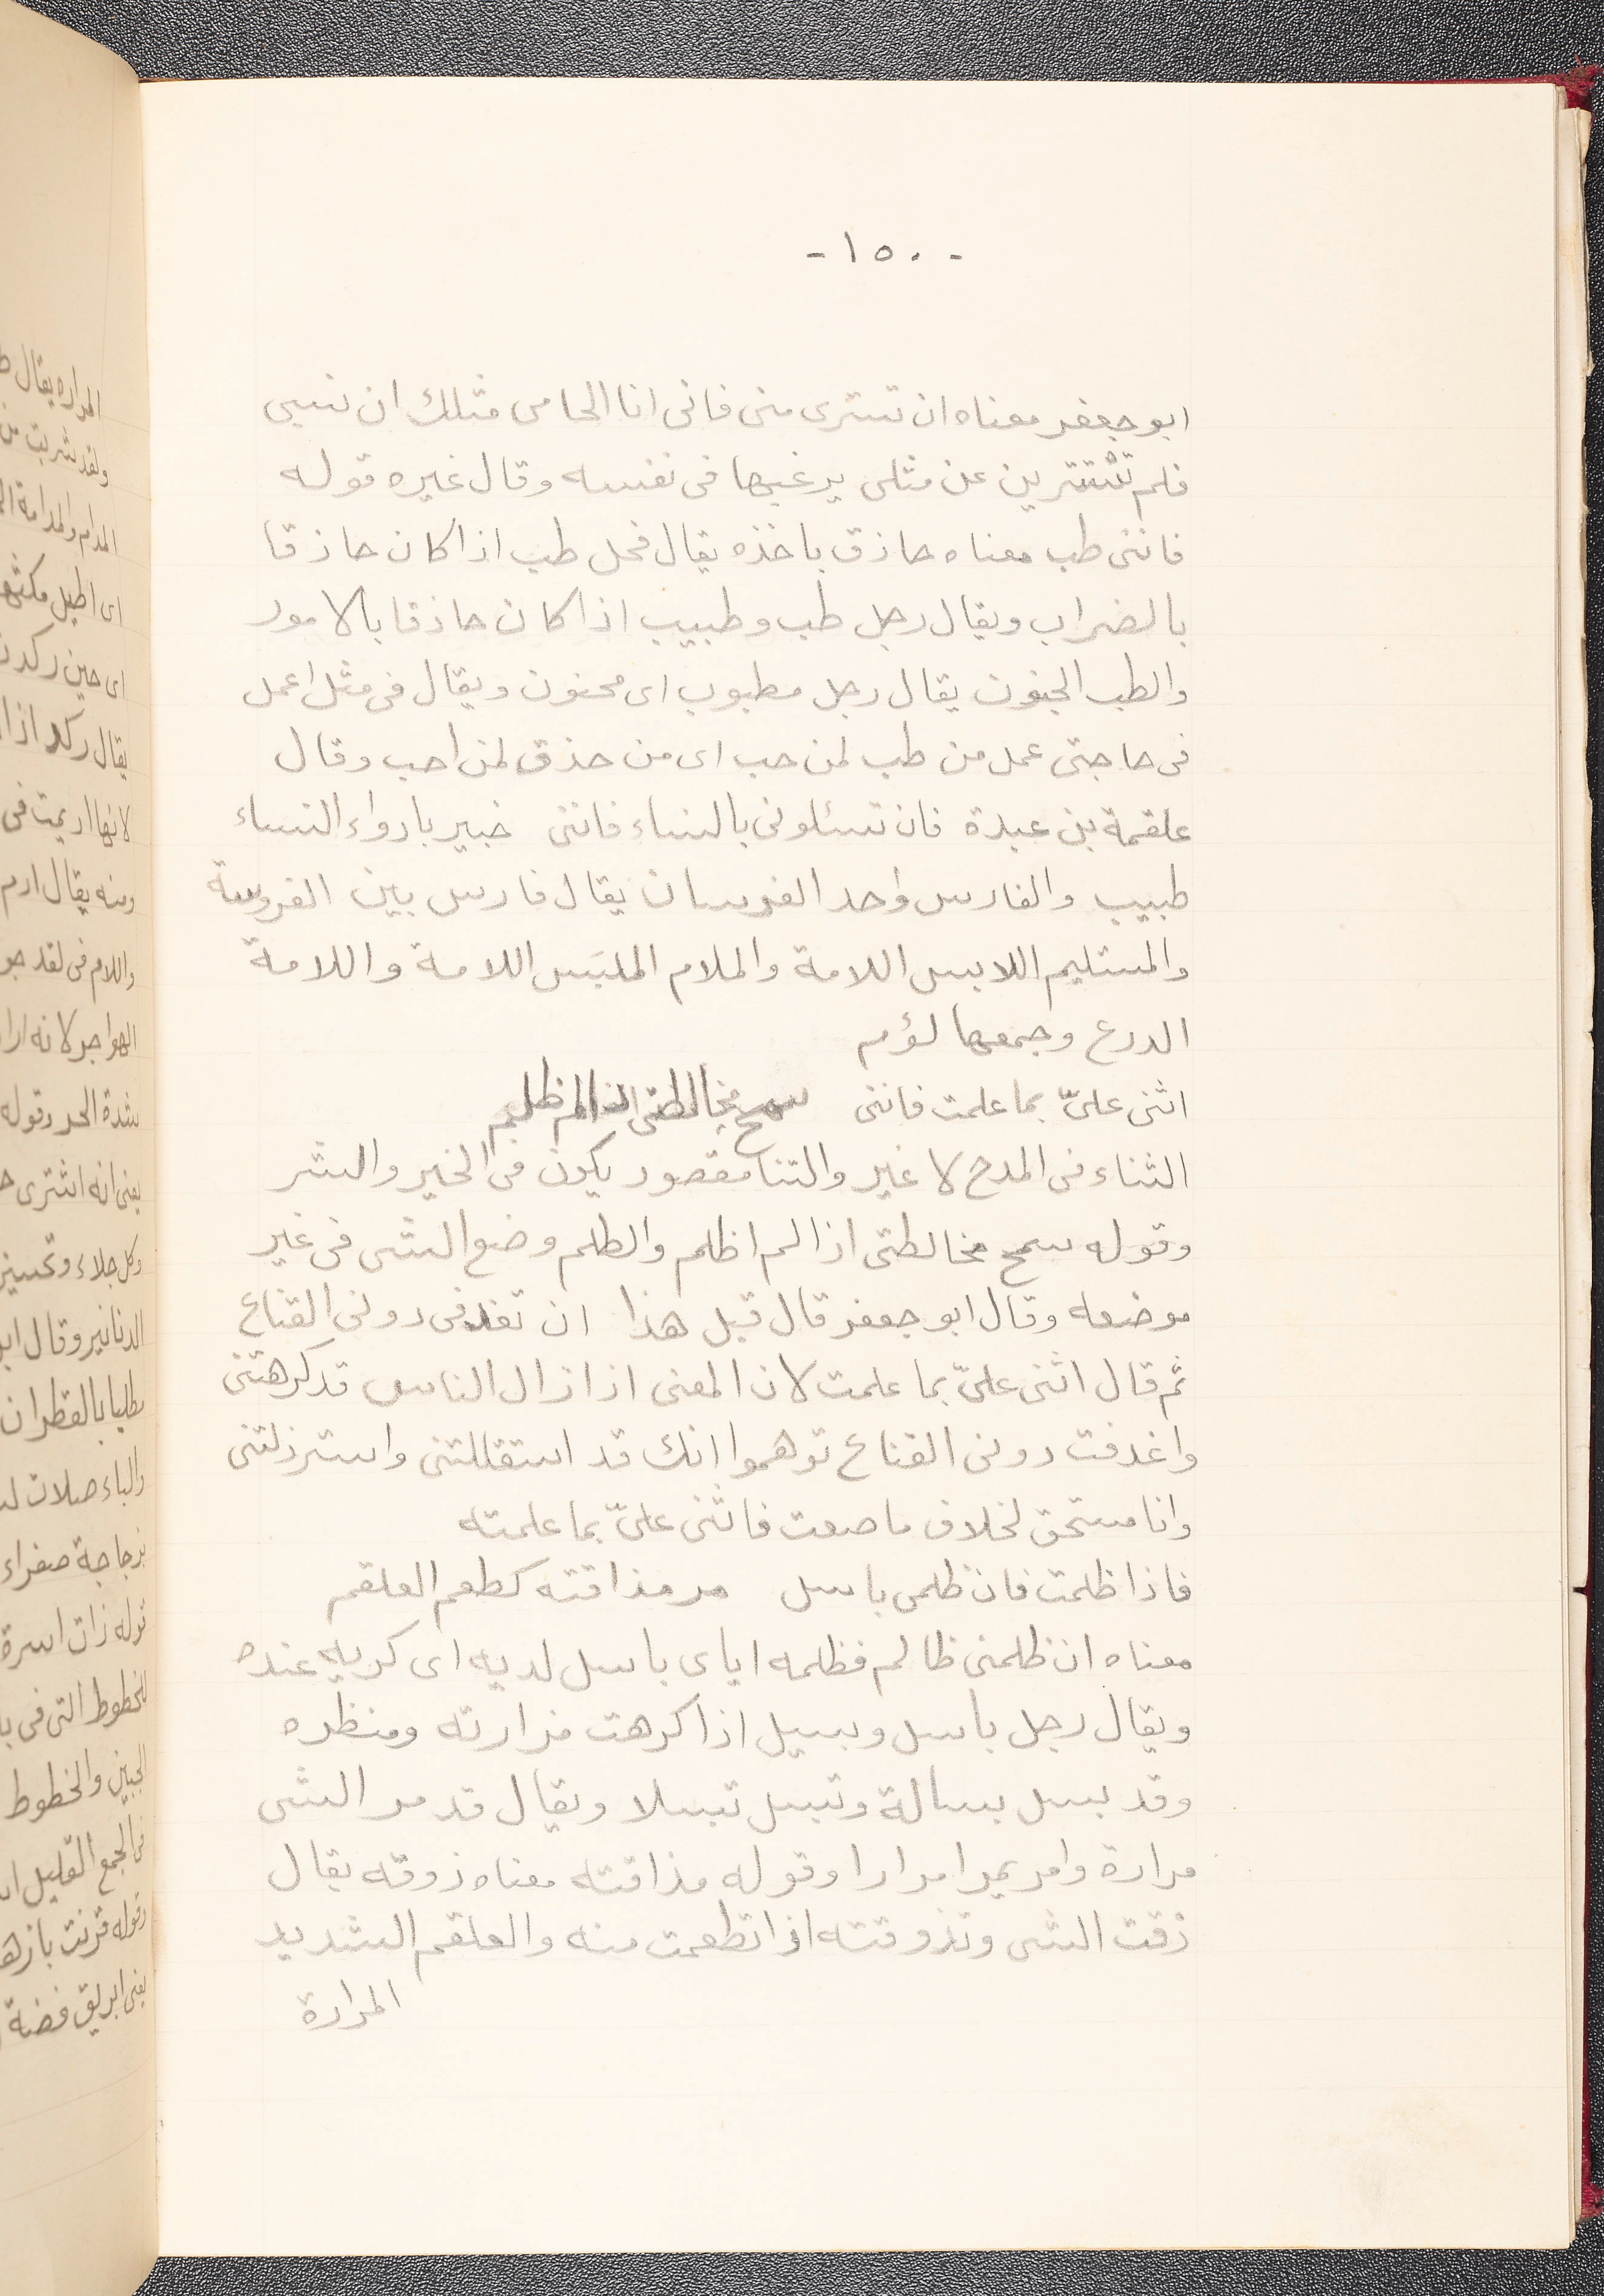 -١٥٠-
ابو جعفر معناه ان تسترى منى فانى انا الحامى مثلك ان تسبى
فلم تستترين عن مثلى يرغبها فى نفسه وقال غيره قوله
فاننى طب معناه حاذق باخذه يقال فحل طب اذا كان حاذقا
بالضراب ويقال رجل طب وطبيب اذا كان حاذقا بالامور
والطب الجنون يقال رجل مطبوب اى مجنون ويقال فى مثل اعمل
فى حاجتى عمل من طب لمن حب اى من حذق لمن احب وقال
علقمة بن عبدة فان تسئلونى بالنساء فاننى خبير بادواء النساء
طبيب والفارس واحد الفرسان يقال فارس بين الفروسة
والمستليم اللابس اللامة والملام الملبَس اللامة واللامة
الدرع وجمعها لؤم
اثنى علىّ بما علمت فاننى سمح مخالطتى اذا لم اظلم
الثناء فى المدح لا غير والثنا مقصور يكون فى الخير والشر
وقوله سمح مخالطتى اذا لم اظلم والظلم وضع الشى فى غير
موضعه وقال ابو جعفر قال قبل هذا ان تغدفى دونى القناع
ثم قال اثنى علىّ بما علمت لان المعنى اذا زال الناس قد كرهتنى
واغدفت دونى القناع توهموا انك قد استقللتنى واسترذلتنى
وانا مستحق لخلاف ما صعت فاثنى علىّ بما علمته
فاذا ظلمت فان ظلمى باسل مر مذاقته كطعم العلقم
معناه ان ظلمنى ظالم فظلمه اياى باسل لديه اى كريه عنده
ويقال رجل باسل وبسيل اذا كرهت مرارته ومنظره
وقد بسل بسالة وتبسل تبسلا ويقال قد مر الشى
مرارة وامر يمر امرارا وقوله مذاقته معناه ذوقه يقال
ذقت الشى وتذوقته اذا تطعمت منه والعلقم الشديد
المرارة